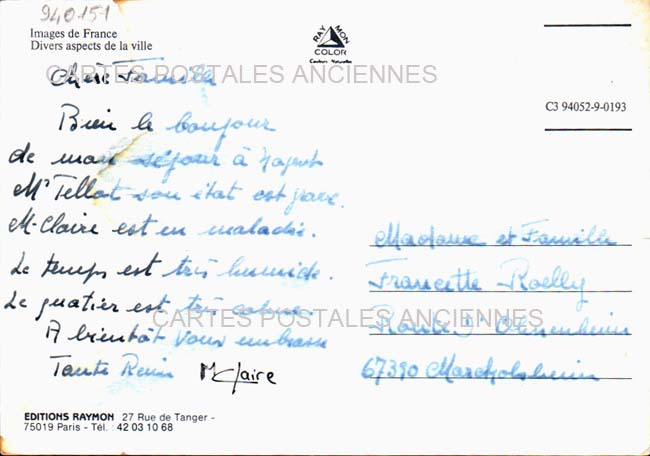 940151
Images de France
Divers aspects de la ville
RAYMON
COLOR
Couleurs Naturelles
C3 94052-9-0193
CARTES POSTALES ANCIENNES
Chère Famille
Bien le bonjour
de mon séjour à Nogent
Mr Tellot son état est grave.
M-Claire est en maladie.
Le temps est très humide.
Le quatier est très calme.
CARTES POSTALES ANCIENNES
A bientôt vous embrasse
Tante
M Claire
Madame et Famille
Francette Roelly
Route d'
67390 Marckolsheim
EDITIONS RAYMON 27 Rue de Tanger -
75019 Paris - Tél. : 42 03 10 68